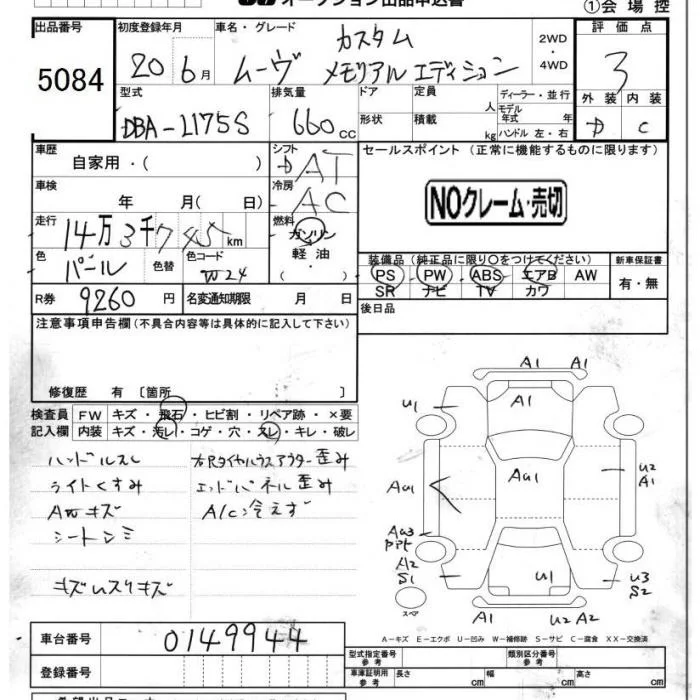 オークション出品申込書
①会場控
出品番号
5084
初度登録年月
20 6月
車名・グレード
ムーヴ カスタム
メモリアルエディション
2WD
・
4WD
評価点
3
外装 内装
D C
型式
DBA-L175S
排気量
660 cc
ドア
形状
定員
人
積載
kg
ディーラー・並行
モデル
年式 年
ハンドル 左・右
車歴
自家用・( )
シフト
AT
セールスポイント (正常に機能するものに限ります)
NOクレーム・売切
車検
年 月( 日)
冷房
AC
走行
14万3千745km
燃料
ガソリン
軽油
・
( )
色
パール
色替
色コード
W24
装備品 (純正品に限り○をつけてください)
PS PW ABS エアB AW
SR ナビ TV カワ
新車保証書
有・無
R券
9260円
名変通知期限 月 日
後日品
注意事項申告欄 (不具合内容等は具体的に記入して下さい)
修復歴 有 〔箇所 〕
検査員
記入欄
FW キズ・飛石・ヒビ割・リペア跡・×要
内装 キズ・汚レ・コゲ・穴・スレ・キレ・破レ
ハンドルスレ
ライトくすみ
AWキズ
シートシミ
キズレスリキズ
右Rタイヤハウスアウター歪み
エンドパネル歪み
A/C冷えず
A1 A1
A1
U1
AU1
AU1
U2
A1
AU3
A2
S1
U1
U3
S2
スペア
A1
U2 A2
A-キズ E-エクボ U-凹み W-補修跡 S-サビ C-腐食 XX-交換済
車台番号
0149944
登録番号
型式指定番号
参考
類別区分番号
参考
車庫証明用
参考
長さ
幅
高さ
cm
cm
cm